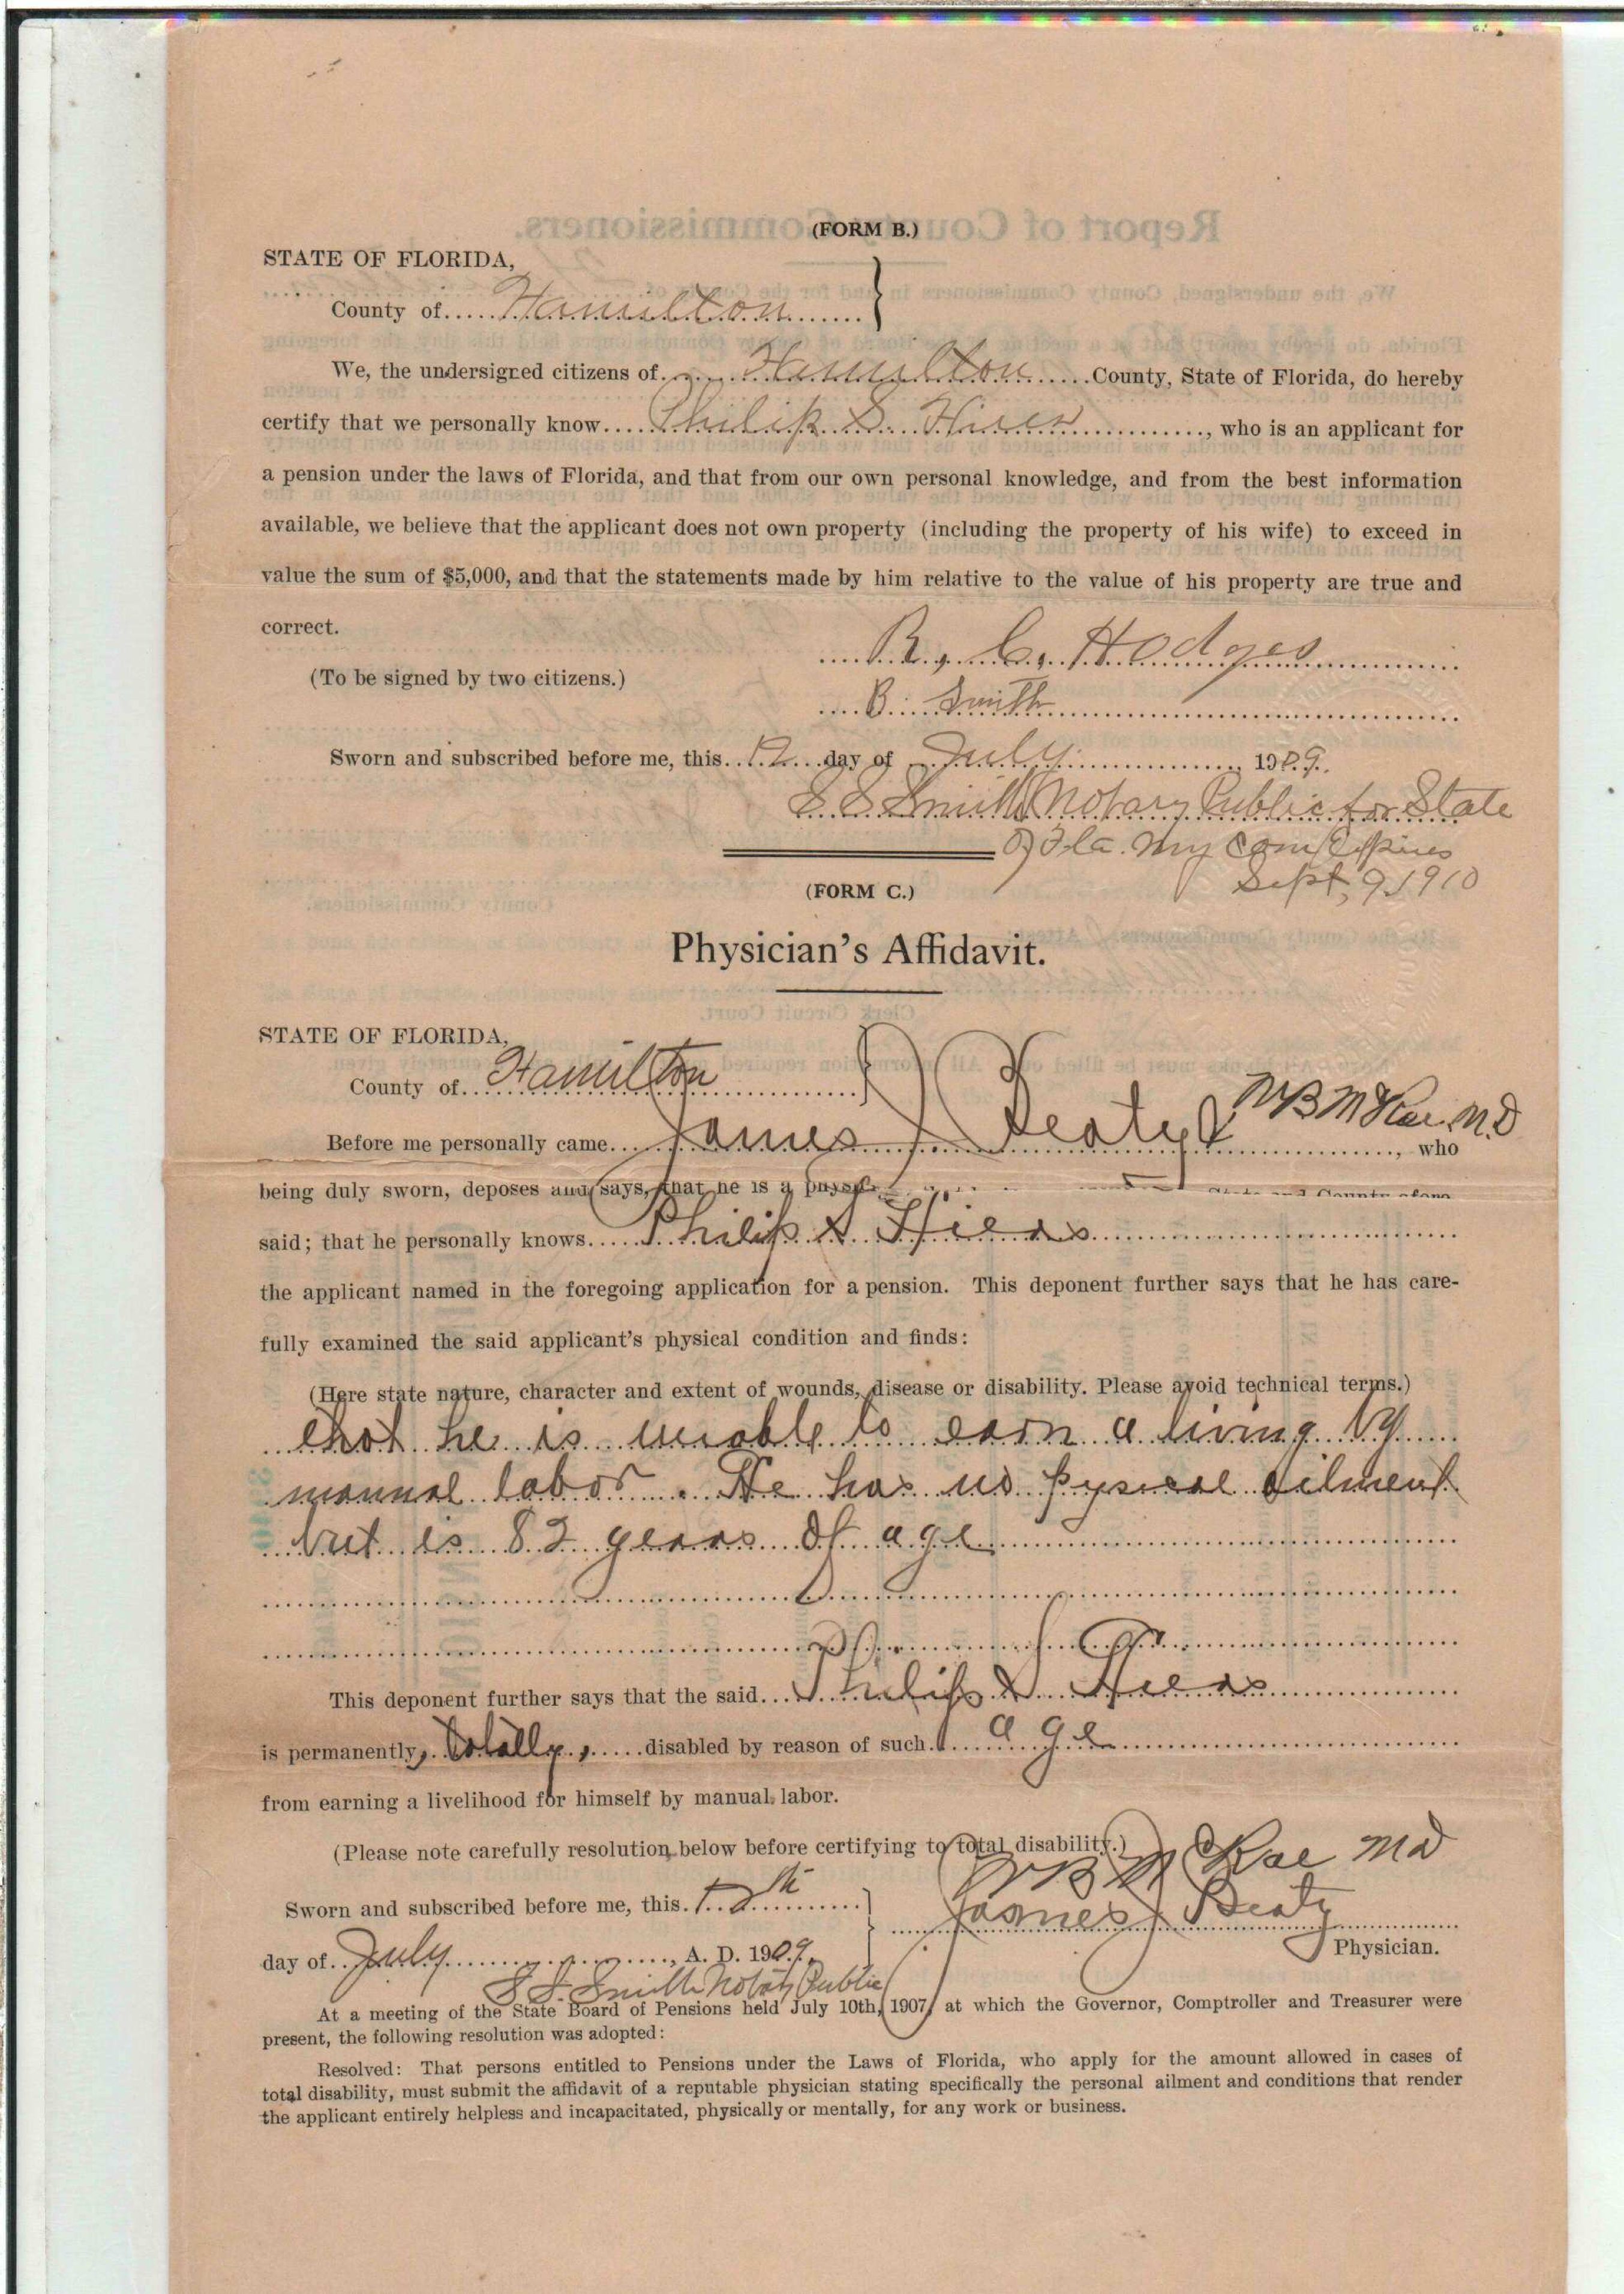 (FORM B.)
STATE OF FLORIDA,
County of Hamilton
We, the undersigned citizens of Hamilton County, State of Florida, do hereby
certify that we personally know Philip S. , who is an applicant for
a pension under the laws of Florida, and that from our own personal knowledge, and from the best information
available, we believe that the applicant does not own property (including the property of his wife) to exceed in
value the sum of $5,000, and that the statements made by him relative to the value of his property are true and
correct.
R, C, Hodges
(To be signed by two citizens.)
B. Smith
Sworn and subscribed before me, this 12 day of July, 1909.
S S Smith Notary Public for State
of Fla. My Com Expires
Sept, 9, 1910
(FORM C.)
Physician's Affidavit.
STATE OF FLORIDA,
County of Hamilton
Before me personally came James J Beaty & W B M Rae M.D, who
being duly sworn, deposes and says, that he is a State and County afore
said; that he personally knows Philip S Hires
the applicant named in the foregoing application for a pension. This deponent further says that he has care-
fully examined the said applicant's physical condition and finds:
(Here state nature, character and extent of wounds, disease or disability. Please avoid technical terms.)
that he is unable to earn a living by
manual labor. He has no pysical ailment
but is 82 years of age
This deponent further says that the said Philip S Hires
is permanently, totally, disabled by reason of such age
from earning a livelihood for himself by manual labor.
(Please note carefully resolution below before certifying to total disability.)
W B McRae MD
Sworn and subscribed before me, this 12th
James J Beaty
Physician.
day of July, A. D. 1909.
S S. Smith Notary Public
At a meeting of the State Board of Pensions held July 10th, 1907, at which the Governor, Comptroller and Treasurer were
present, the following resolution was adopted:
Resolved: That persons entitled to Pensions under the Laws of Florida, who apply for the amount allowed in cases of
total disability, must submit the affidavit of a reputable physician stating specifically the personal ailment and conditions that render
the applicant entirely helpless and incapacitated, physically or mentally, for any work or business.